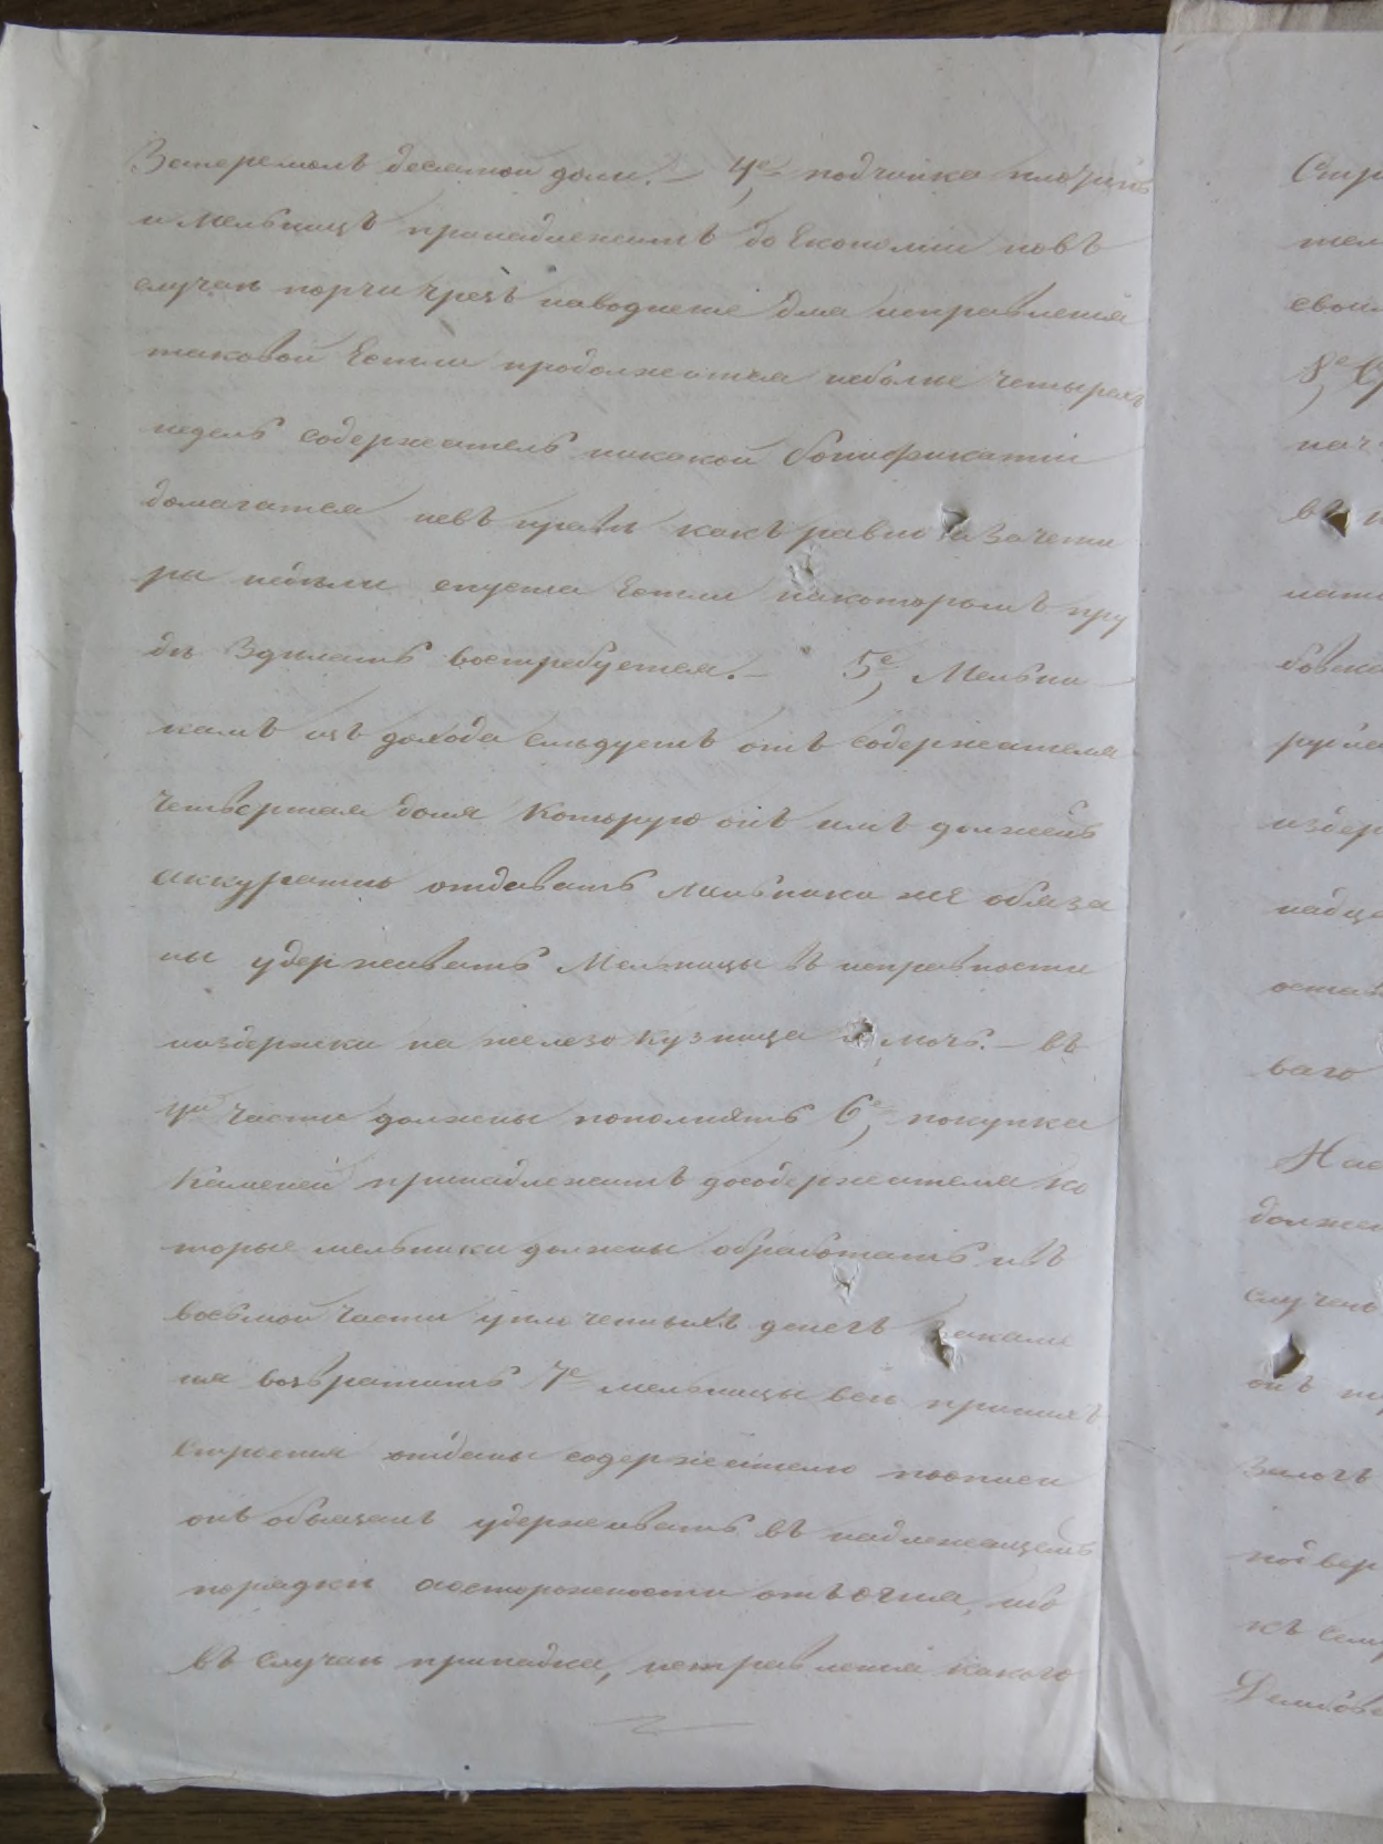 Заперемолъ десятой доли. — 4е, подчинка плотинъ
и мельницъ принадлежитъ до Економіи новъ
случаѣ порчи чрезъ наводнение для исправленія
таковой Естли продолжится неболѣе четырехъ
недель содержатель никакой бонификатіи
домагатся невъ правѣ какъ равно изачети
ри недѣли спуста Естли накоторомъ пру
дѣ Здѣлать востребуется. — 5е, Мельни
камъ изъ дохода слѣдуетъ отъ содержателя
четвертая доля Которую онъ имъ долженъ
аккуратно отдавать мельники же обяза
ны удерживать Мельницы въ исправности
издержки на железо кузница и мочь. — въ
4й части должны пополнять 6е, покупка
Каменей принадлежитъ досодержателя ко
торые мельники должны обработать и въ
восьмой части уплаченныхъ денегъ закаме
ня возвратить 7е мельницы всѣ принихъ
Строенія отданы содержателю поописи
онъ обязанъ удерживать въ надлежащемъ
порядкѣ аосторожности отъ огня, ибо
въ случаѣ припадка, неправленія какого
Стр
тел
свои
8е, С
нач
въ
лат
бовска
руп
издер
надц
остав
ваго
Нас
должен
случаю
онъ
Залогъ
подвер
къ сем